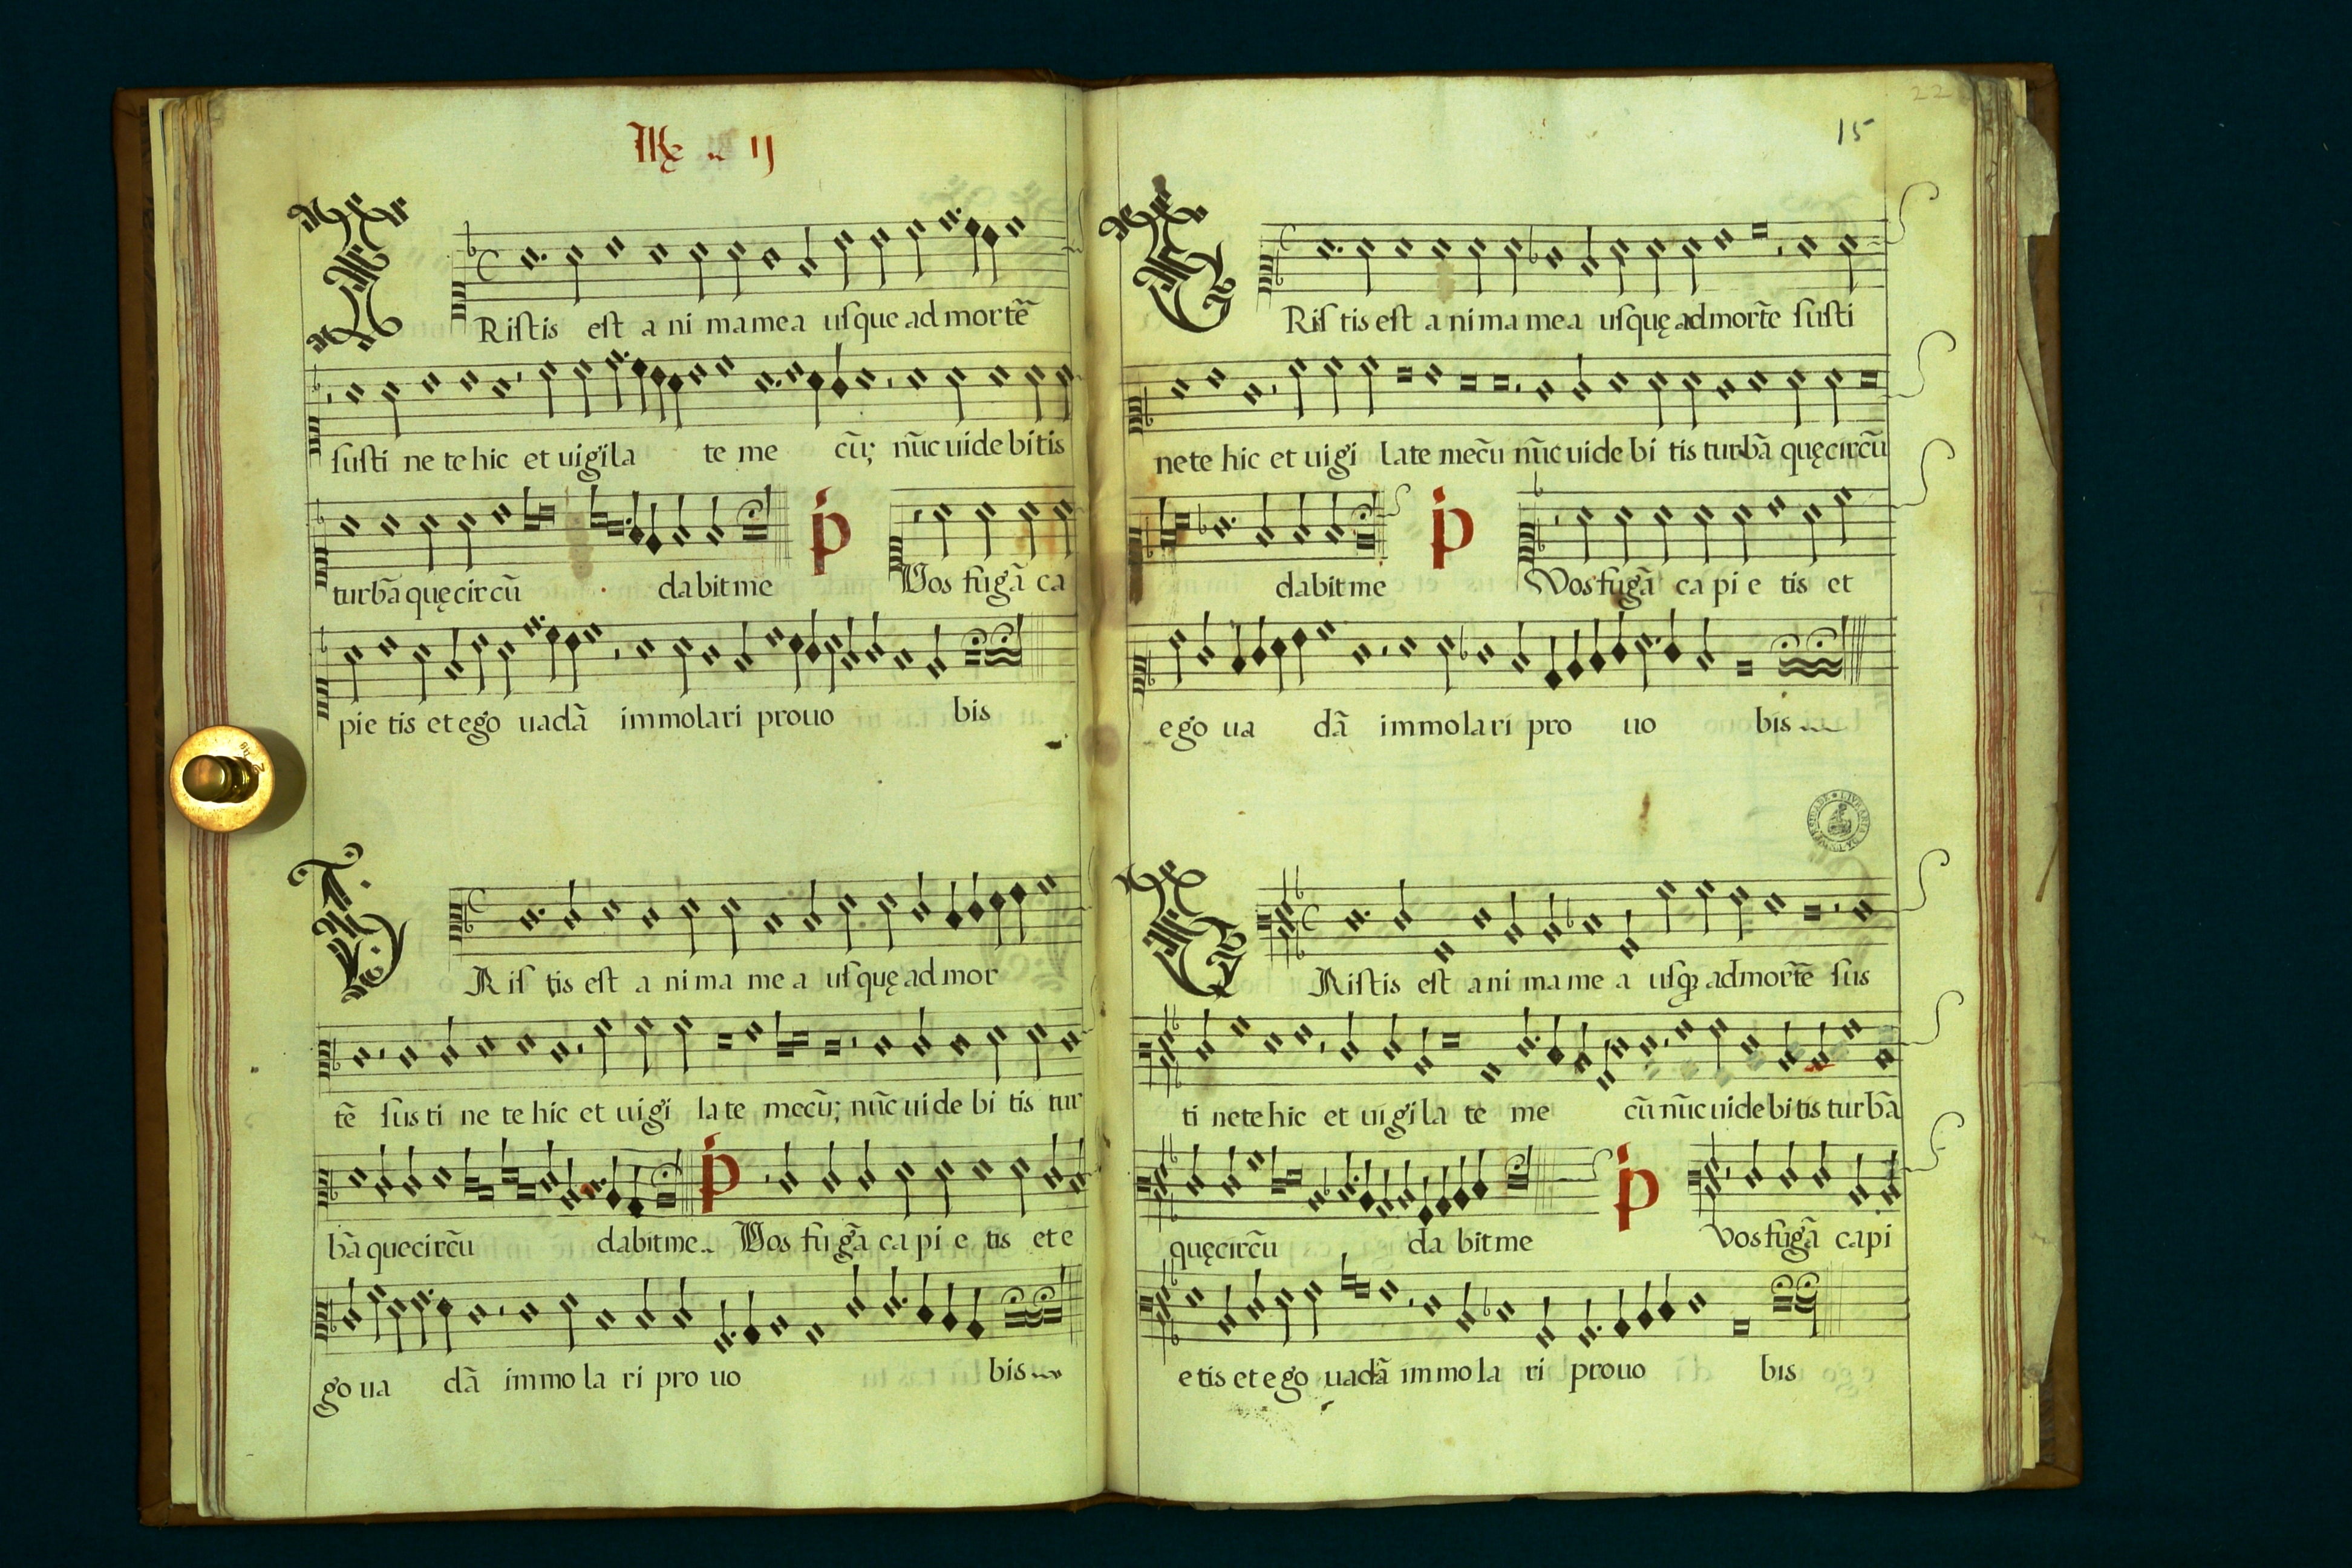 ℞ ij
Ristis est a ni ma me a usque ad mortẽ
susti ne te hic et uigila te me cũ; nũc uide bitis
turbã quę circũ dabit me p Vos fugã ca
pie tis et ego uadã immolari pro uo bis
Ris tis est a ni ma me a usquę ad mor
tẽ sus ti ne te hic et uigi la te mecũ; nũc ui de bi tis tur
bã que circũ dabit me p Vos fu gã ca pi e tis et e
go ua dã im mo la ri pro uo bis
22
15
Ris tis est a ni ma me a usquę ad mortẽ susti
nete hic et uigi late mecũ nũc uide bi tis turbã quę circũ
dabit me p Vos fugã ca pi e tis et
ego ua dã immolari pro uo bis
Ristis est a ni ma me a usq̃ ad mortẽ sus
ti nete hic et uigila te me cũ nũc uidebitis turbã
quę circũ da bit me p Vos fugã capi
e tis et ego uadã immola ri pro uo bis